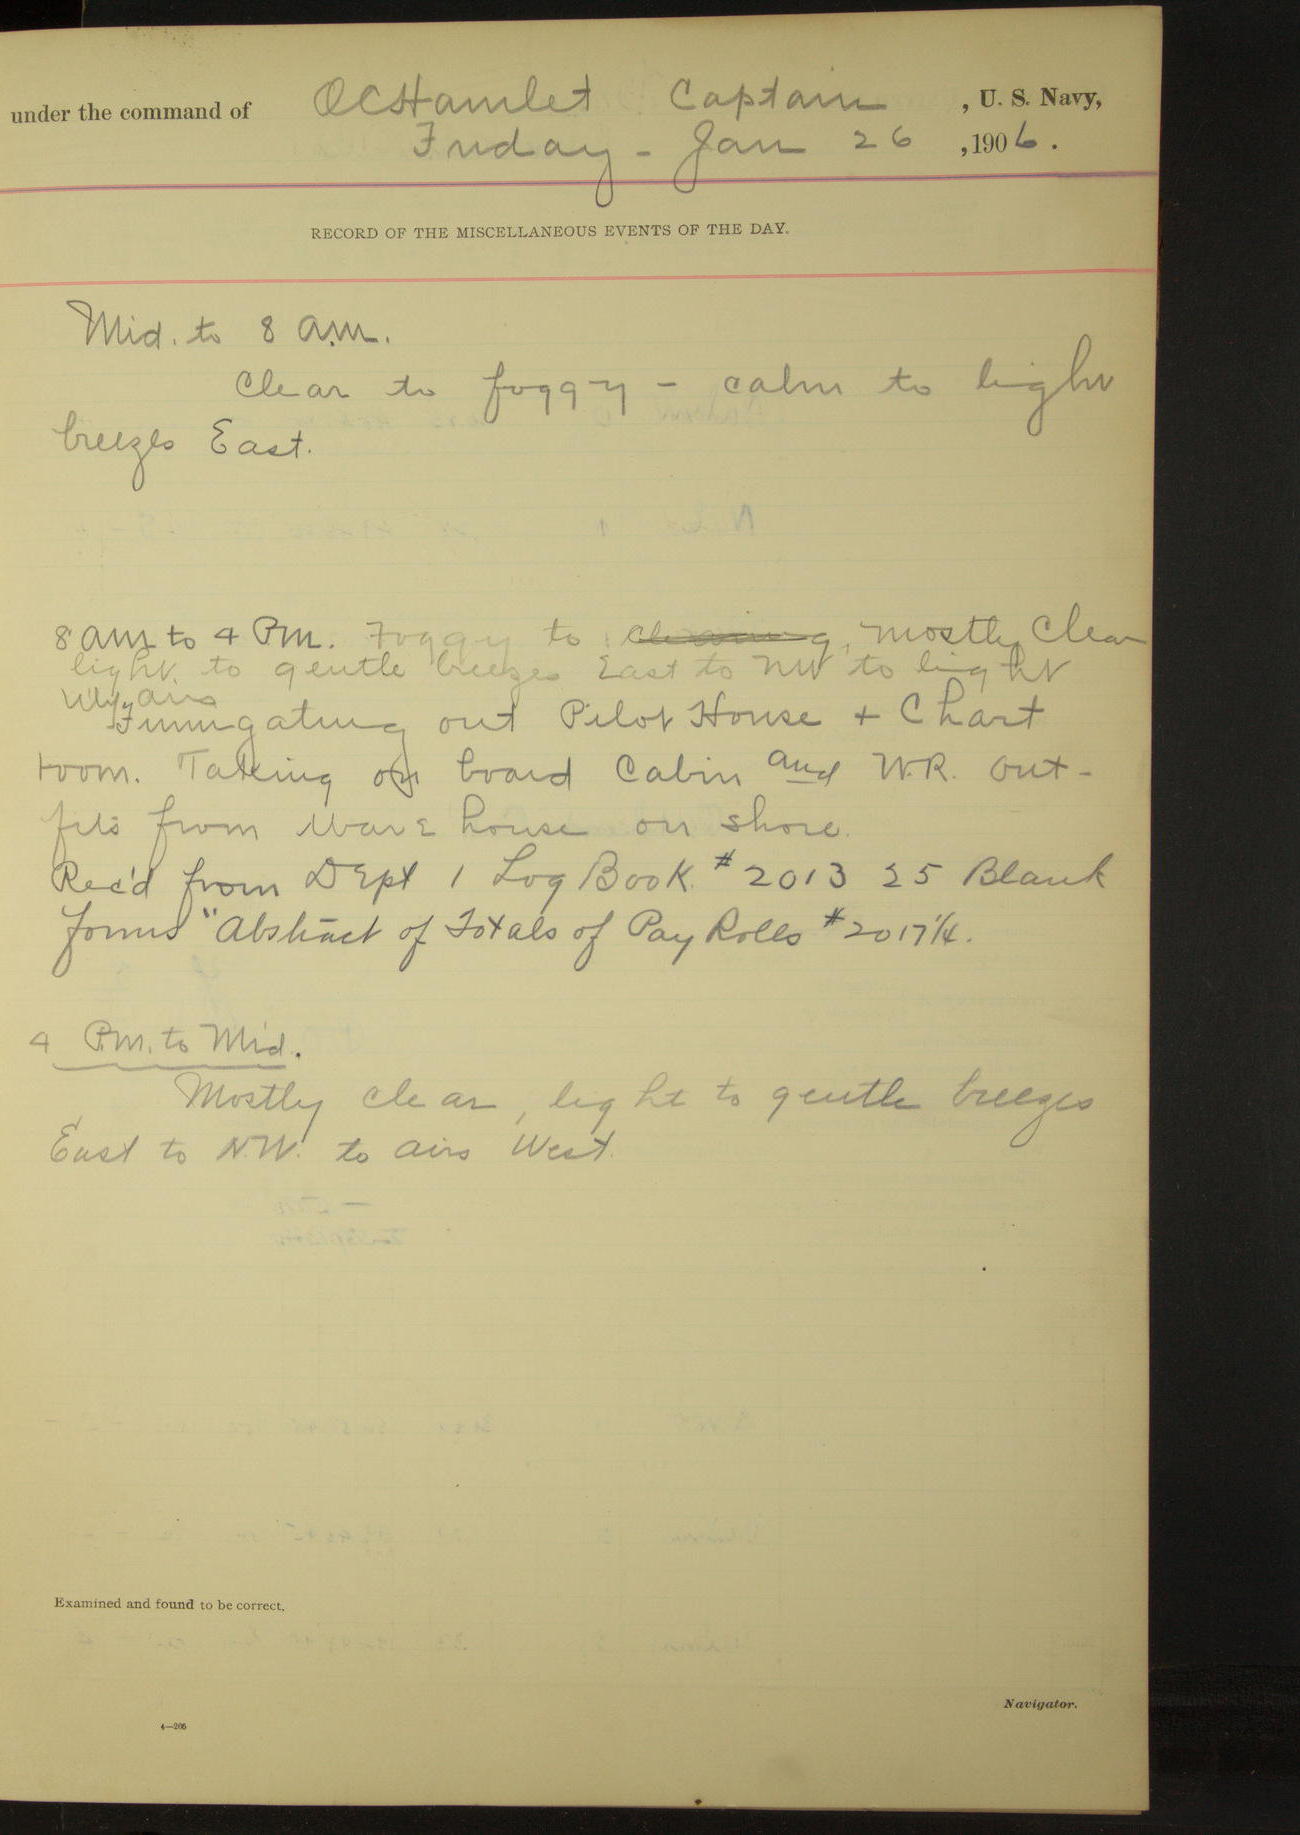 under the command of OCHamlet Captain , U. S. Navy,
Friday - Jan 26 , 1906.
RECORD OF THE MISCELLANEOUS EVENTS OF THE DAY.
Mid. to 8 a.m.
Clear to foggy - calm to light
breezes East.
8 am to 4 Pm. Foggy to clearing, mostly Clear
light to gentle breezes East to NW to light
W'ly airs
Fumigating out Pilot House + Chart
room. Taking on board Cabin and W.R. out-
fits from Ware house on shore.
Rec'd from Dept 1 Log Book # 2013 25 Blank
forms "Abstract of Totals of Pay Rolls # 2017 1/4.
4 P.m. to Mid.
Mostly clear, light to gentle breezes
East to N.W. to airs West.
Examined and found to be correct.
Navigator.
4—206